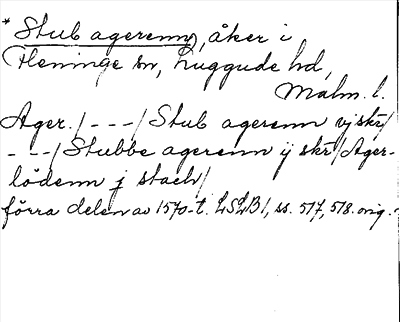 * Stub agerenn, åker i
Fleninge sn, Luggude hd,
Malm. l.
Ager. / - - - / Stub agerenn vj skr/
- - - / Stubbe agerenn ij skr / Ager-
lödenn j stach /
förra delen av 1570-t. LSLB 1, ss. 517, 518. orig.